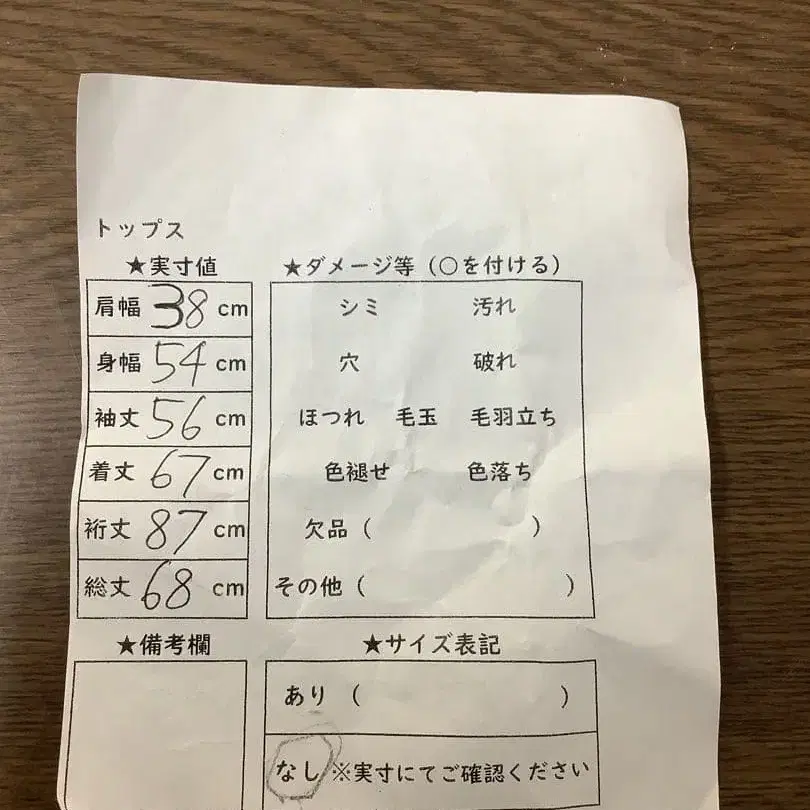 トップス
★実寸値
肩幅 38 cm
身幅 54 cm
袖丈 56 cm
着丈 67 cm
裄丈 87 cm
総丈 68 cm
★ダメージ等（○を付ける）
シミ 汚れ
穴 破れ
ほつれ 毛玉 毛羽立ち
色褪せ 色落ち
欠品（ ）
その他（ ）
★備考欄
★サイズ表記
あり（ ）
なし ※実寸にてご確認ください